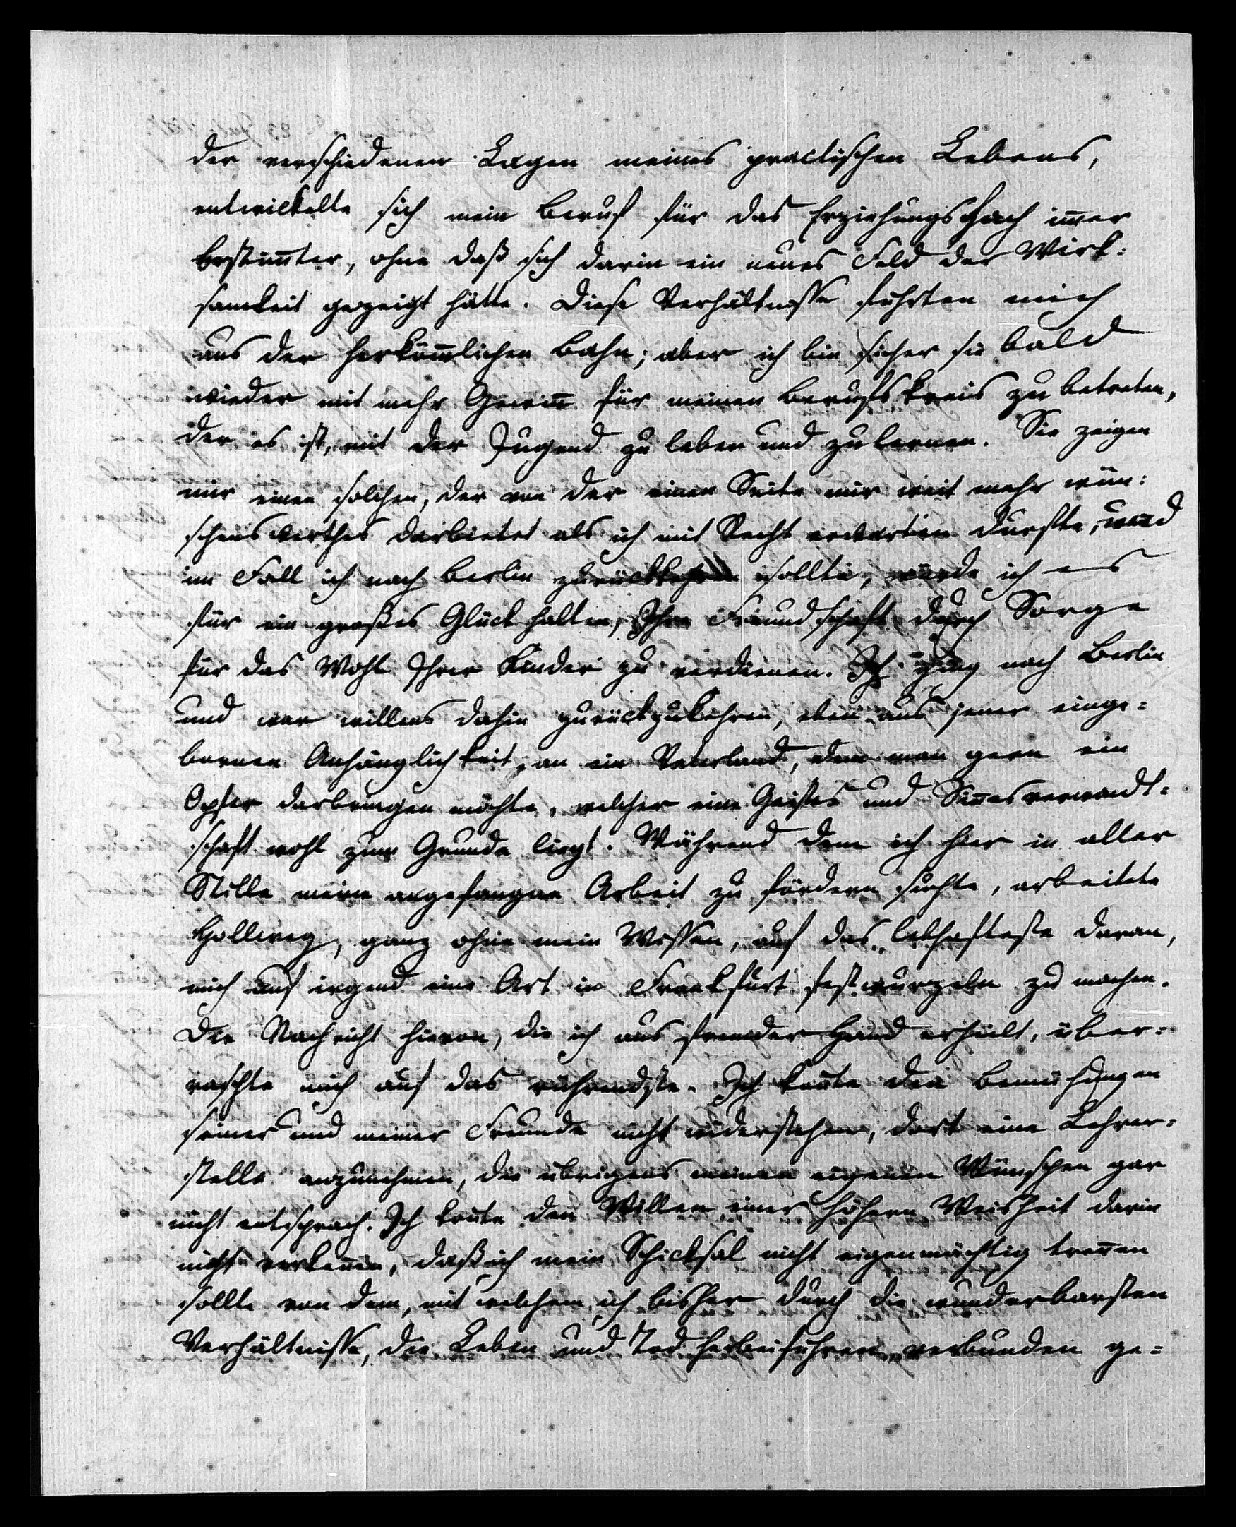 der verschiedenen Lagen meines practischen Lebens,
entwickelte sich mein Beruf für das Erziehungsfach imer
bestimter, ohne daß sich darin ein neues Feld der Wirk:
samkeit gezeigt hätte. Diese Verhältnisse führten mich
aus der herkömlichen Bahn; aber ich bin sicher sie bald
wieder mit mehr Gewinn für meinen Berufskreis zu betreten,
der es ist, mit der Jugend zu leben und zu lernen. Sie zeigen
mir einen solchen, der von der einen Seite mir weit mehr wün:
schenswerthes darbietet als ich mit Recht erwarten durfte, und
im Fall ich nach Berlin zurückkehren sollte, würde ich es
für ein großes Glück halten, Ihre Freundschaft durch Sorge
für das Wohl Ihrer Kinder zu verdienen. Ich ging nach Berlin
und war willens dahin zurückzukehren, eben aus jener einge=
bornen Anhänglichkeit, an ein Vaterland, dem man gern ein
Opfer darbringen möchte, welcher eine Geistes und Sinnesverwandt=
schaft wohl zum Grunde liegt. Während dem ich hier in aller
Stille meine angefangne Arbeit zu fördern suchte, arbeitete
Hollweg, ganz ohne mein Wissen, auf das lebhafteste daran,
mich auf irgend eine Art in Frankfurt festwurzeln zu machen.
Die Nachricht hievon, die ich aus fremder Hand erhielt, über=
raschte mich auf das rührendste. Ich konte den Bemühungen
seiner und meiner Freunde nicht widerstehen, dort eine Lehrer=
stelle anzunehmen, die übrigens meinen eigenen Wünschen gar
nicht entsprach. Ich konte den Willen einer höhern Weisheit darin
nicht verkennen, daß ich mein Schicksal nicht eigenmächtig trennen
sollte von dem, mit welchem ich bisher durch die wunderbarsten
Verhältnisse, die Leben und Tod herbeiführen, verbunden ge=